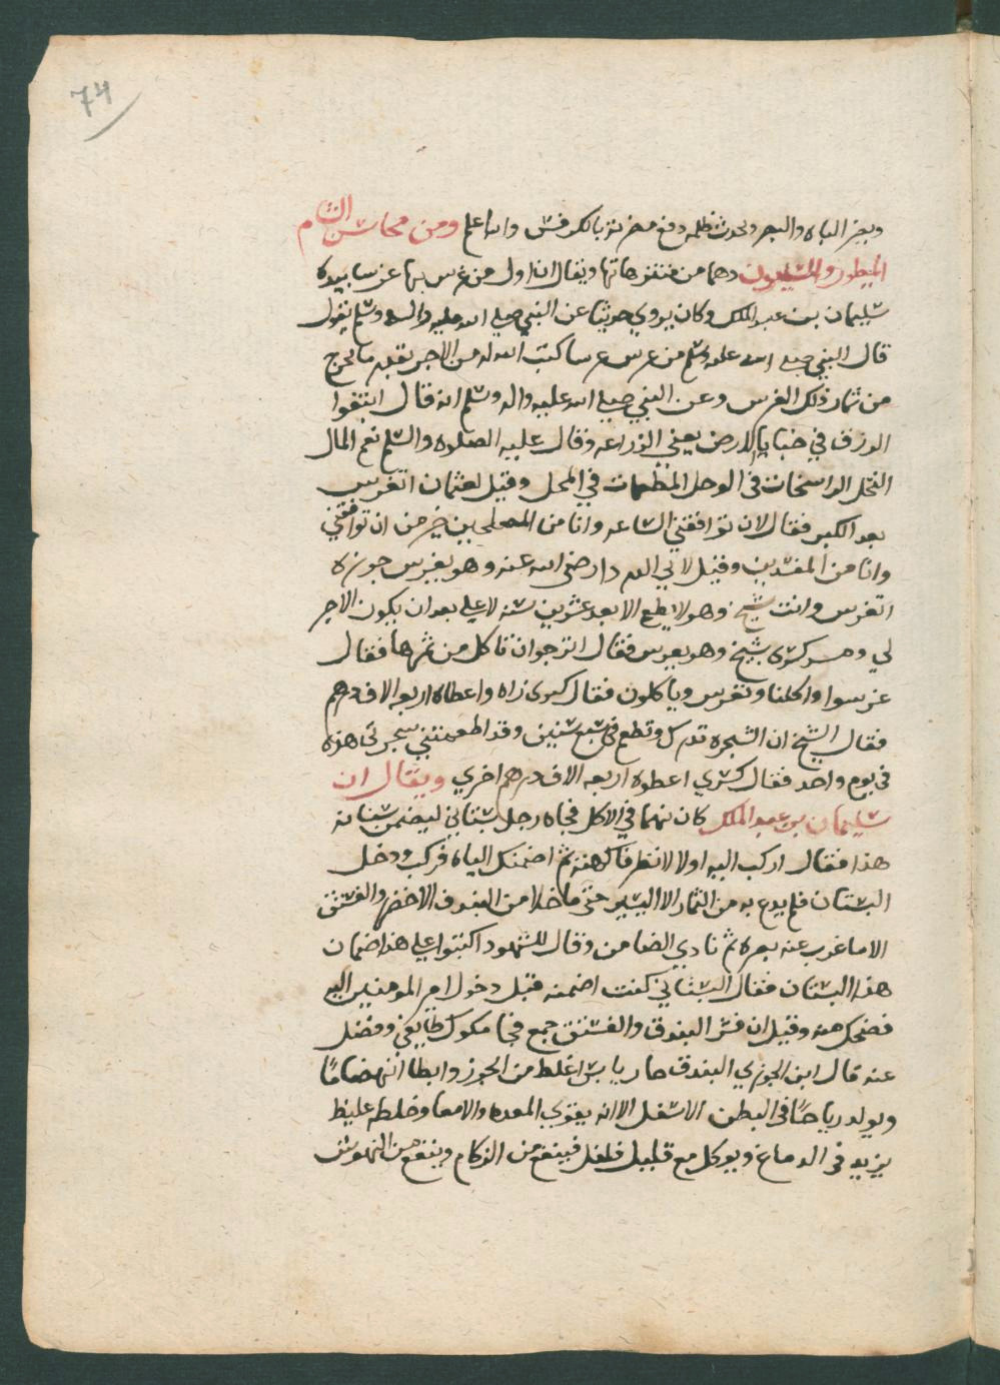 74
ويضر الباه والبصر ويحدث ظلمه ودفع مضرته بالكرفس والله اعلم ومن محاسن الشام
البيطور والسليمون وهما من منتزهاتها ويقال ان اول من غرس بها غرسا بيده
سليمان بن عبد الملك وكان يروي حديثا عن النبي صلى الله عليه واله وسلم يقول
قال النبي صلى الله عليه وسلم من غرس غرسا كتب الله له من الاجر بقدر ما يخرج
من ثمار ذلك الغرس وعن النبي صلى الله عليه واله وسلم انه قال ابتغوا
الرزق في خبايا الارض يعني الزراعه وقال عليه الصلوه والسلم نعم المال
النخل الراسخات في الوحل المطعمات في المحل وقيل لعثمان اتغرس
بعد الكبر فقال لان توافقني الساعه وانا من المصلحين خير من ان توافقني
وانا من المفسدين وقيل لابي الدردا رضي الله عنه وهو يغرس جوزه
اتغرس وانت شيخ وهو لا يطعم الا بعد عشرين سنه لا علي بعد ان يكون الاجر
لي ومر كسرى بشيخ وهو يغرس فقال اترجو ان تاكل من ثمرها فقال
غرسوا واكلنا ونغرس وياكلون فقال كسرى زاه واعطاه اربعه الاف درهم
فقال الشيخ ان الشجره تدرك وتطعم في سبع سنين وقد اطعمتني شجرتي هذه
في يوم واحد فقال كسرى اعطوه اربعه الاف درهم اخري ويقال ان
سليمان بن عبد الملك كان نهما في الاكل فجاه رجل بستاني ليضمن بستانه
هذا فقال اركب اليه اولا لانظر فاكهته ثم اضمنك اياه فركب ودخل
البستان فلم يدع به من الثمار الا اليسير حتى ما خلا من البندق الاخضر والفستق
الا ما غرب عنه بصره ثم نادي الضامن وقال للشهود اكتبوا علي هذا ضمان
هذا البستان فقال البستاني كنت اضمنه قبل دخول امير المومنين اليه
فضحك منه وقيل ان قشر البندق والفستق جمع فجا مكوك طايفي وفضل
عنه قال ابن الجوزي البندق حار يابس اغلظ من الجوز وابطا انهضاما
ويولد رياحا في البطن الاسفل الا انه يقوي المعده والامعا وخلطه غليظ
يزيد في الدماغ ويوكل مع قليل فلفل فينفع من الزكام وينفع من النهوش